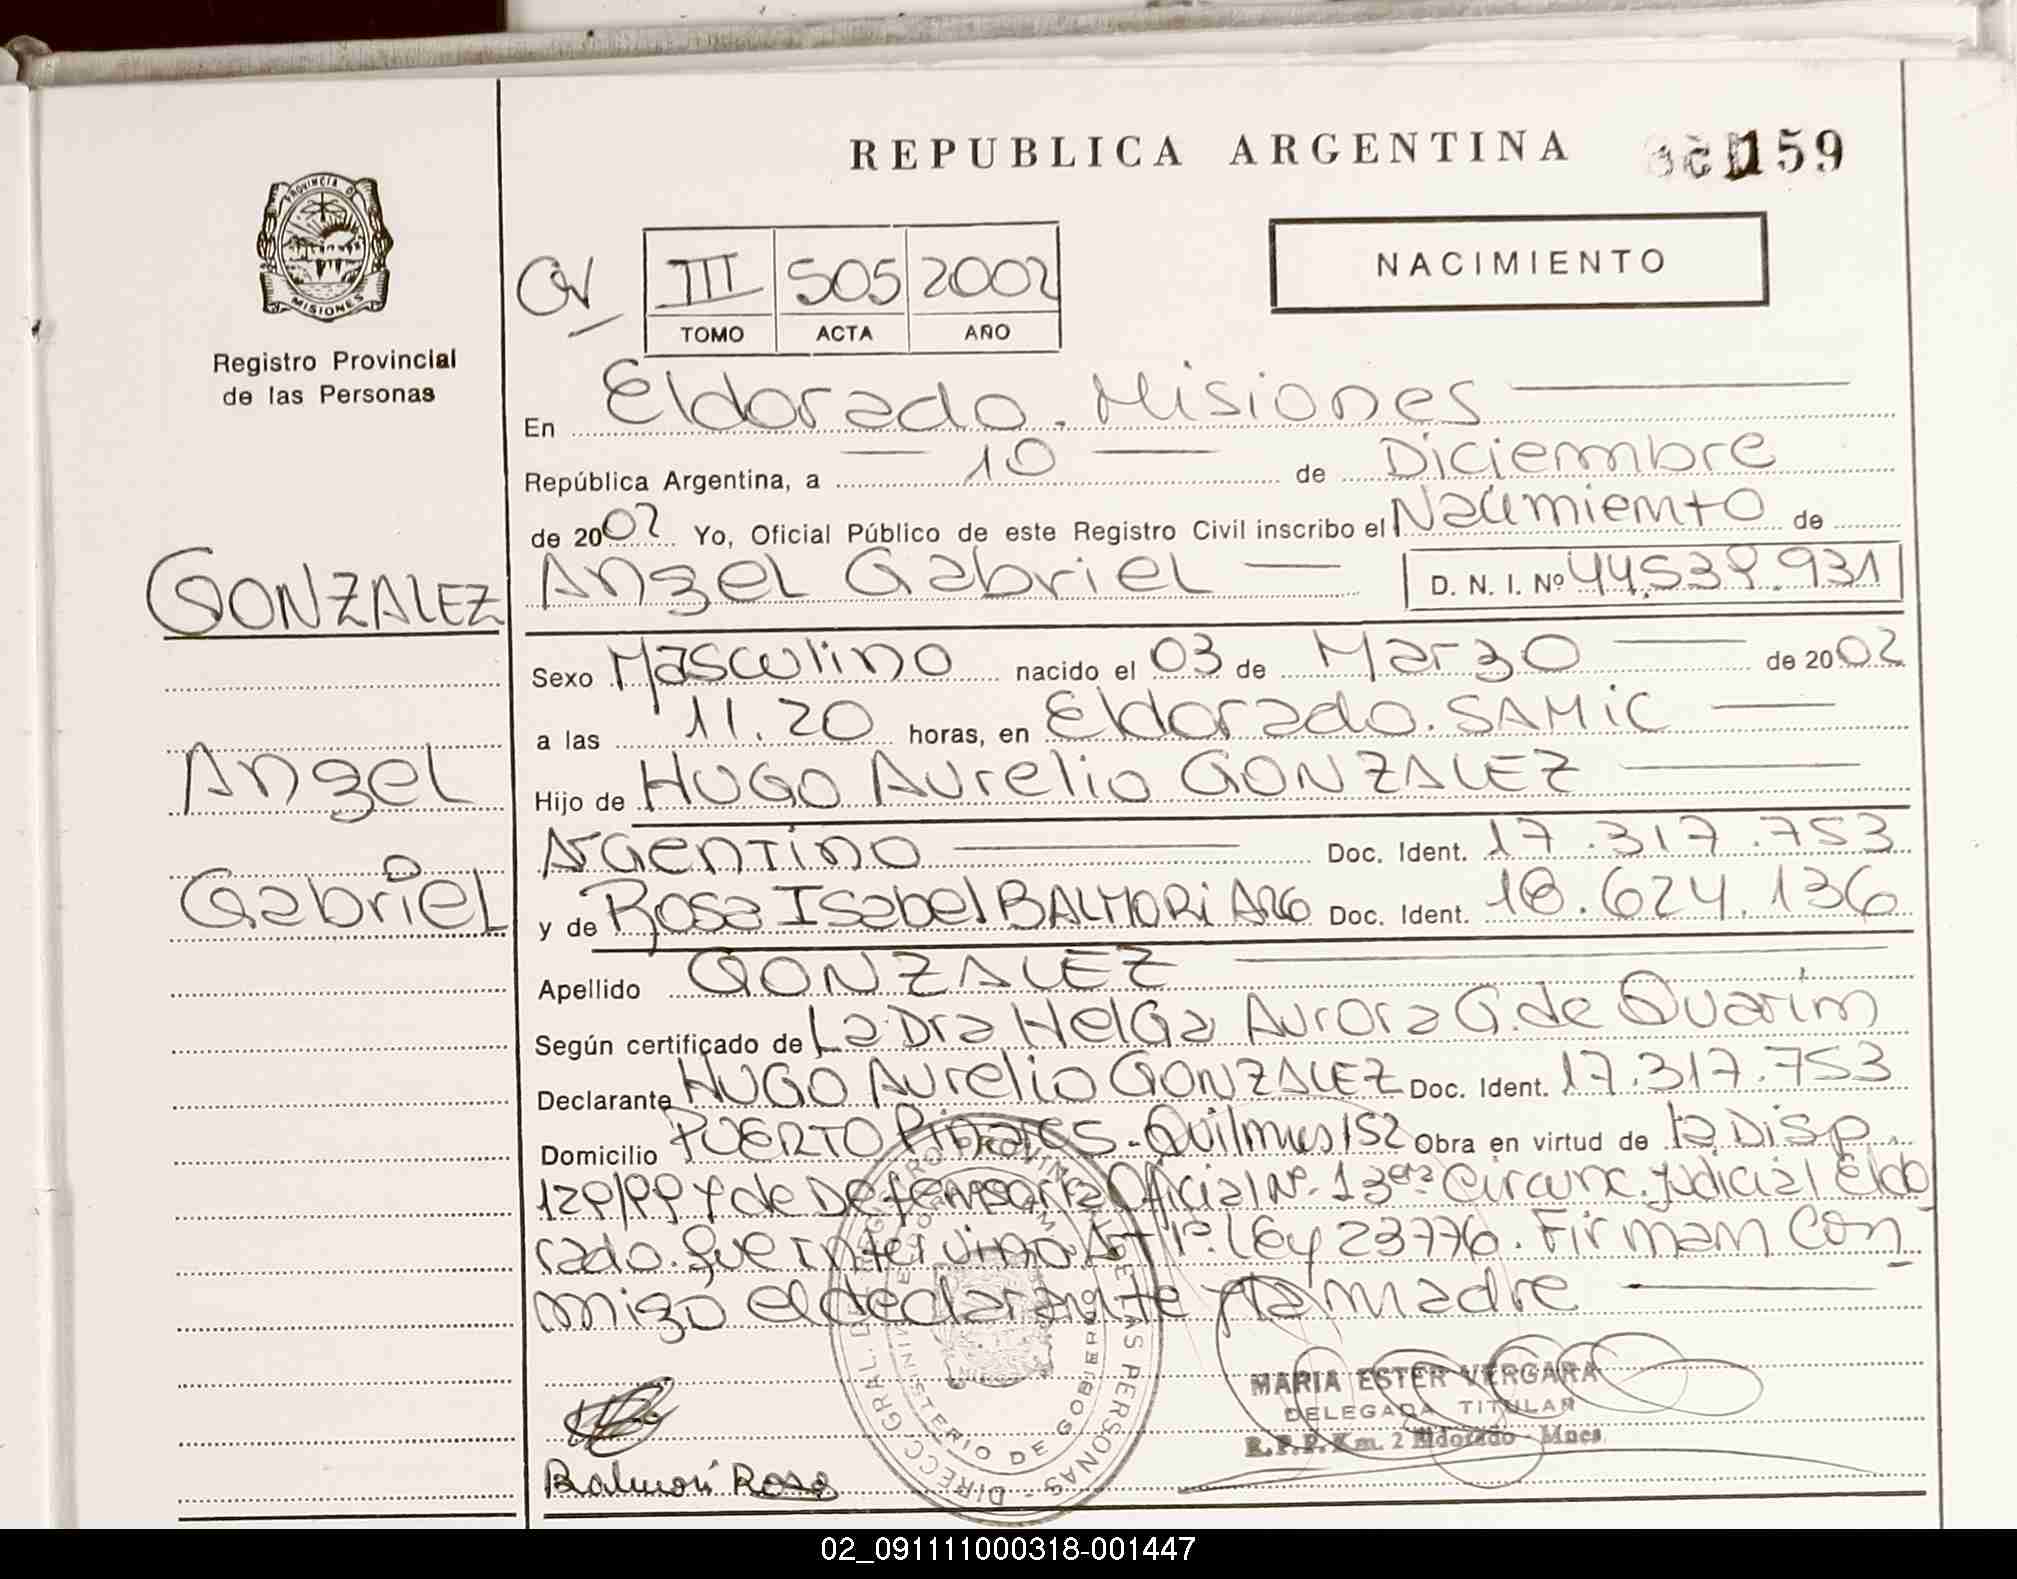 REPUBLICA ARGENTINA
159
PROVINCIA DE
MISIONES
Registro Provincial
de las Personas
III 505 2002
TOMO ACTA AÑO
NACIMIENTO
En Eldorado. Misiones
República Argentina, a 10 de Diciembre
de 2002 Yo, Oficial Público de este Registro Civil inscribo el Nacimiento de
GONZALEZ Angel Gabriel D. N. I. Nº 44.539.931
Sexo Masculino nacido el 03 de Marzo de 2002
a las 11.20 horas, en Eldorado. SAMiC
Angel
Hijo de HUGO Aurelio GONZALEZ
Argentino Doc. Ident. 17.317.753
Gabriel
y de Rosa Isabel BALMORi ARG Doc. Ident. 18.624.136
Apellido GONZALEZ
Según certificado de La Dra Helga Aurora G. de Quarim
Declarante HUGO Aurelio GONZALEZ Doc. Ident. 17.317.753
Domicilio PUERTO Pinares - Quilmes 152 Obra en virtud de la Disp.
y de Defensoria Oficial Nº 1 3era Circunc. Judicial Eldo
rado. que intervino Art 1º. Ley 23776. Firman Con
migo el declarante y la madre
MARIA ESTER VERGARA
DELEGADA TITULAR
R.P.P. Km. 2 Eldorado - Mnes.
Balmori Rosa
DIRECC GRAL. DEL REGISTRO PROVINCIAL DE LAS PERSONAS
MINISTERIO DE GOBIERNO
02_091111000318-001447